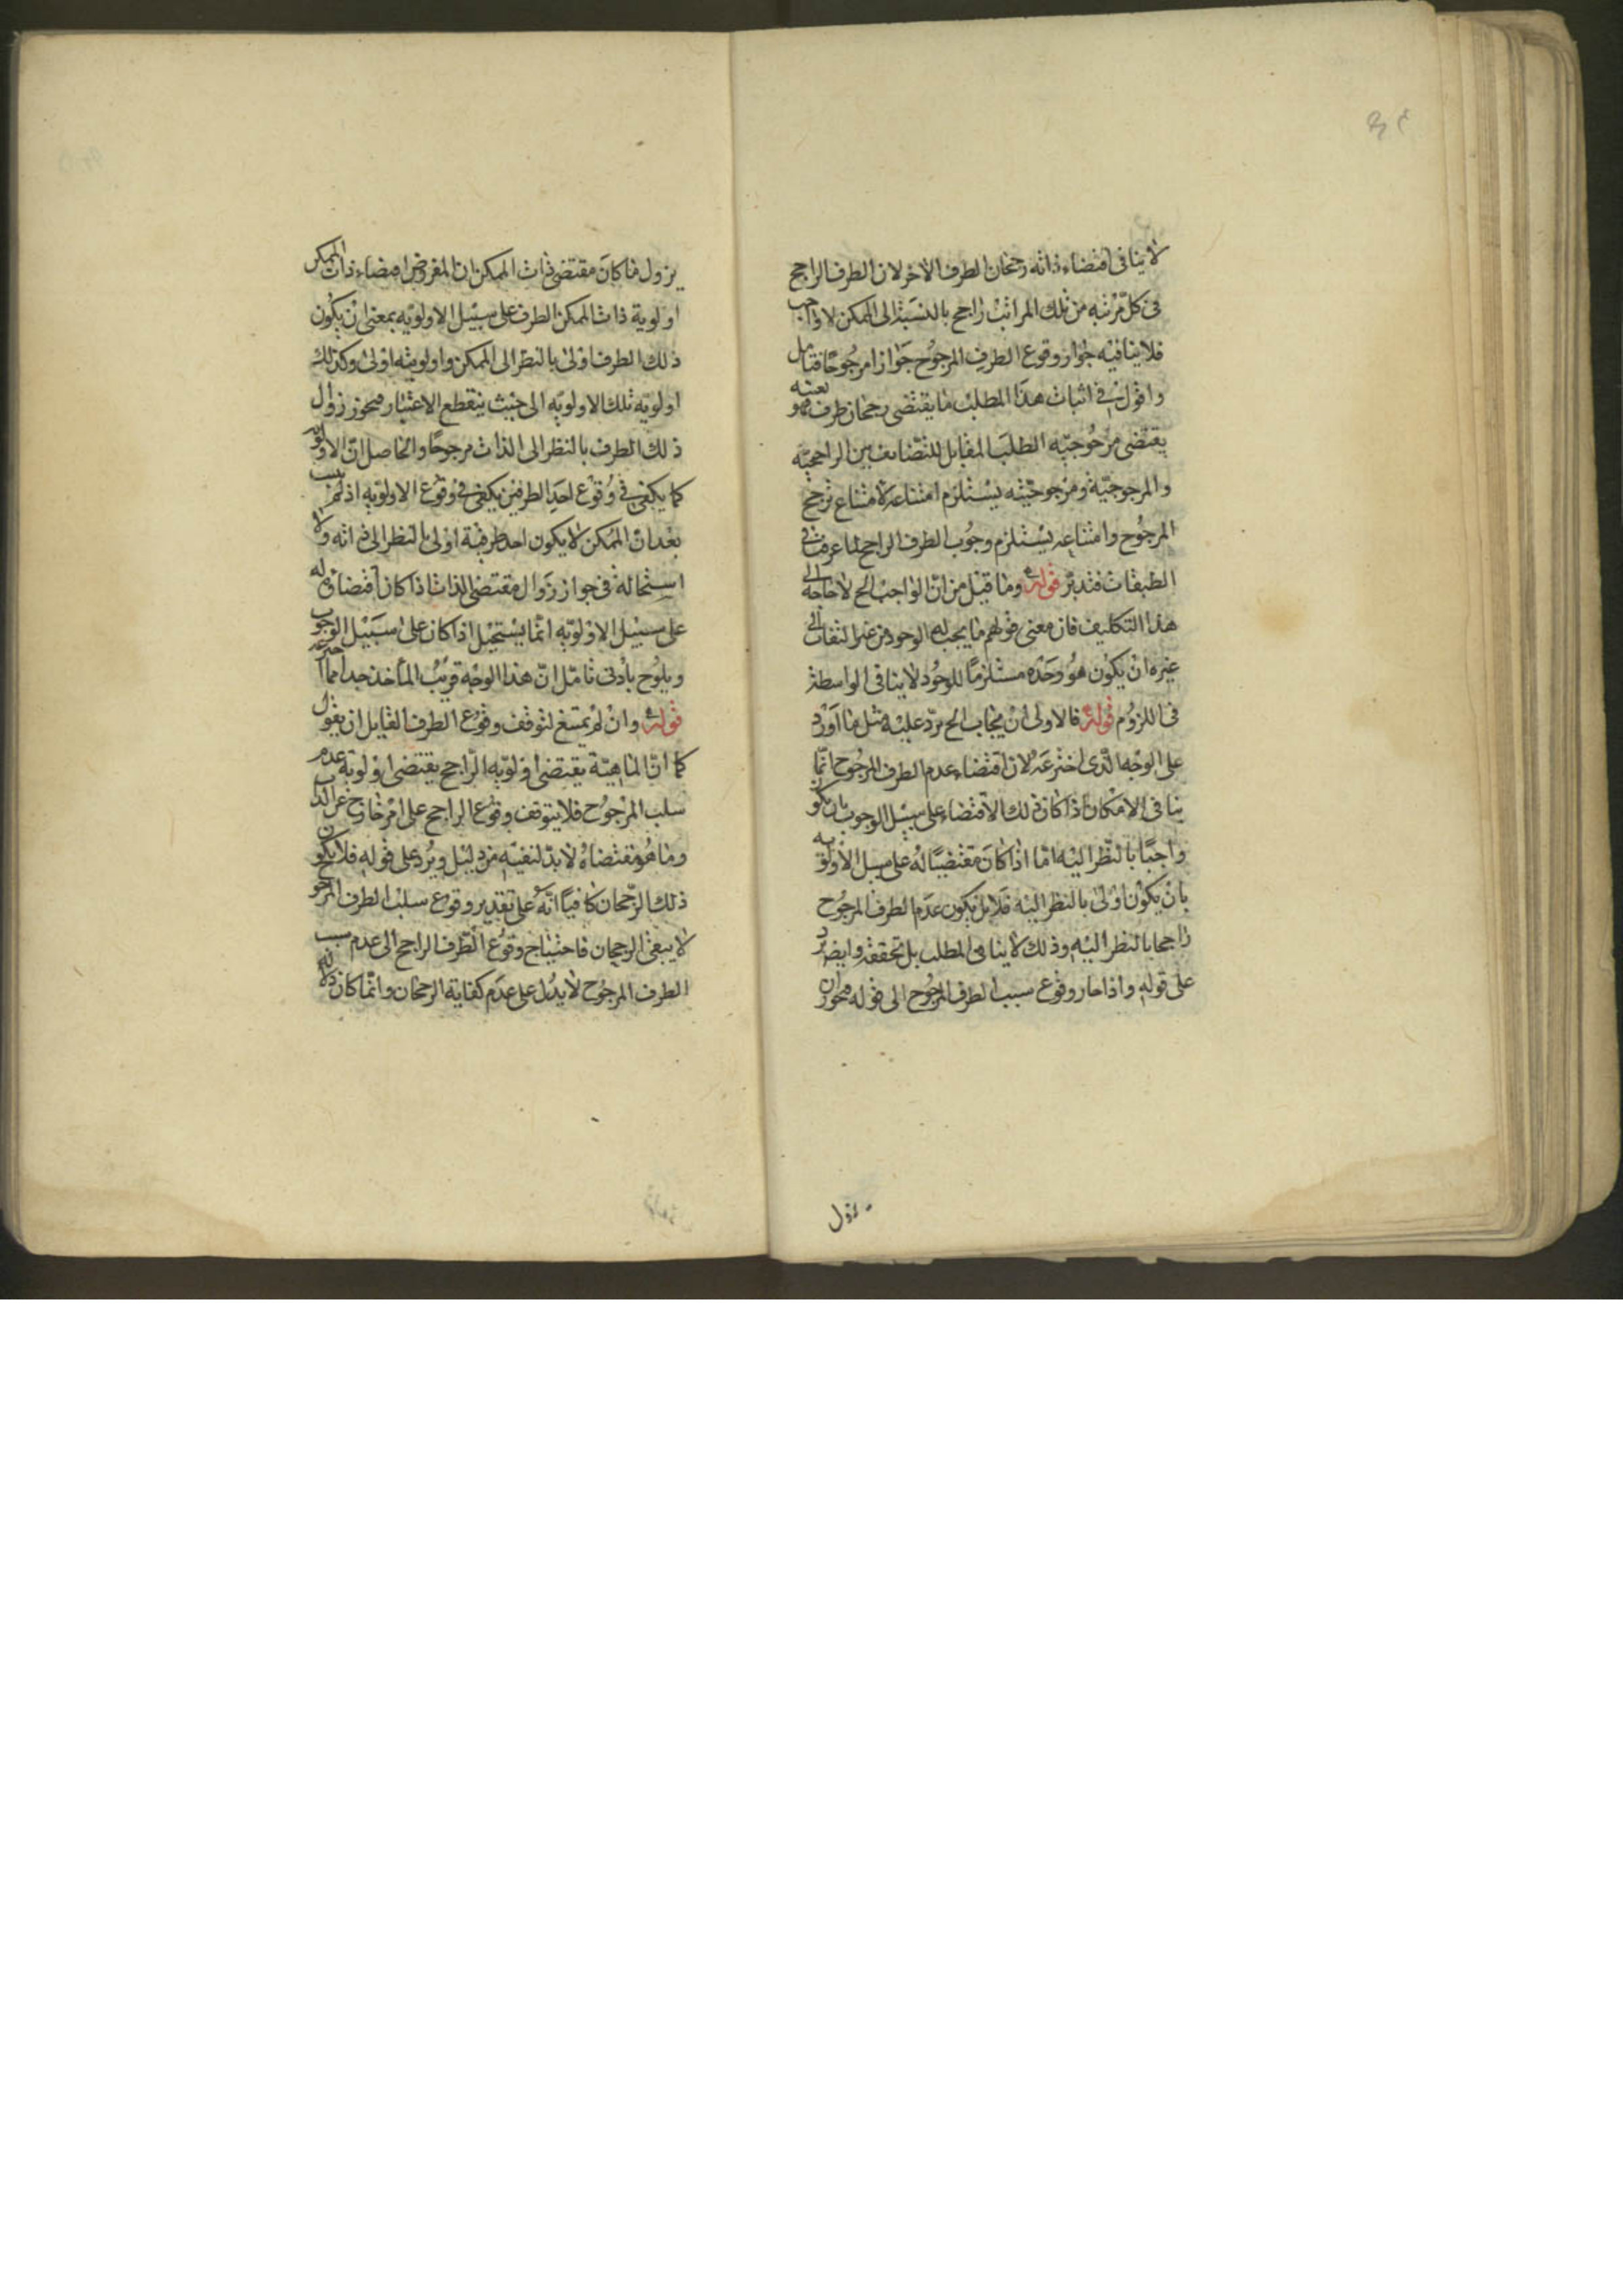 لا ينافى اقتضاء ذاته رجحان الطرف الاخر لان الطرف الراجح
فى كل مرتبه من تلك المراتب راجح بالنسبة الى الممكن لا واجب
فلا ينافيه جواز وقوع الطرف المرجوح جوازا مرجوحا فتامل
واقول فى اثبات هذا المطلب ما يقتضى رجحان طرف فهو بعينه
يقتضى مرجوحيه الطلب المقابل للتضايف بين الراجحيه
والمرجوحية ومرجوحيته يستلزم امتناعه لامتناع ترجح
المرجوح وامتناعه يستلزم وجوب الطرف الراجح لما عرفت فى
الطبقات فتدبر قوله وما قيل من ان الواجب الخ لا حاجة الى
هذا التكليف فان معنى قولهم ما يجب له الوجود من غير التفات الى
غيره ان يكون هو وحده مستلزما للوجود لا ينافى الواسطة
فى اللزوم قوله فالاولى ان يجاب الخ يرد عليه مثل ما اورد
على الوجه الذى اخترعه لان اقتضاء عدم الطرف المرجوح انما
ينافى الامكان اذا كان ذلك الاقتضاء على سبيل الوجوب بان يكون
واجبا بالنظر اليه اما اذا كان مقتضيا له على سبيل الاولويه
بان يكون اولى بالنظر اليه فلا بل يكون عدم الطرف المرجوح
راجحا بالنظر اليه وذلك لا ينافى المطلب بل تحققه وايضا يرد
على قوله واذا جاز وقوع سبب الطرف المرجوح الى قوله فيجوز ان
يزول
يزول ما كان مقتضى ذات الممكن ان المفروض اقتضاء ذات الممكن
اولوية ذات الممكن الطرف على سبيل الاولويه بمعنى ان يكون
ذلك الطرف اولى بالنظر الى الممكن واولويته اولى وكذلك
اولويه تلك الاولويه الى حيث ينقطع الاعتبار فيجوز زوال
ذلك الطرف بالنظر الى الذات مرجوحا والحاصل ان الاولويه
كما يكفى فى وقوع احد الطرفين يكفى فى وقوع الاولويه اذ لم يثبت
بعد ان الممكن لا يكون احد طرفية اولى بالنظر الى ذاته ولا
استحالة فى جواز زوال مقتضى الذات اذا كان اقتضاؤه له
على سبيل الاولويه انما يستحيل اذا كان على سبيل الوجوب
ويلوح بادنى تامل ان هذا الوجه قريب الماخذ جدا مما اخترعه
قوله وان لم يمتنع لتوقف وقوع الطرف لقايل ان يقول
كما ان الماهية يقتضى اولويه الراجح يقتضى اولوية عدم
سلب المرجوح فلا يتوقف وقوع الراجح على امر خارج عن الذات
وما هو مقتضاه لا بد لنفيه من دليل ويرد على قوله فلا يكون
ذلك الرجحان كافيا انه على تقدير وقوع سلب الطرف المرجوح
لا يبقى الرجحان فاحتياج وقوع الطرف الراجح الى عدم سبب
الطرف المرجوح لا يدل على عدم كفاية الرجحان وانما كان